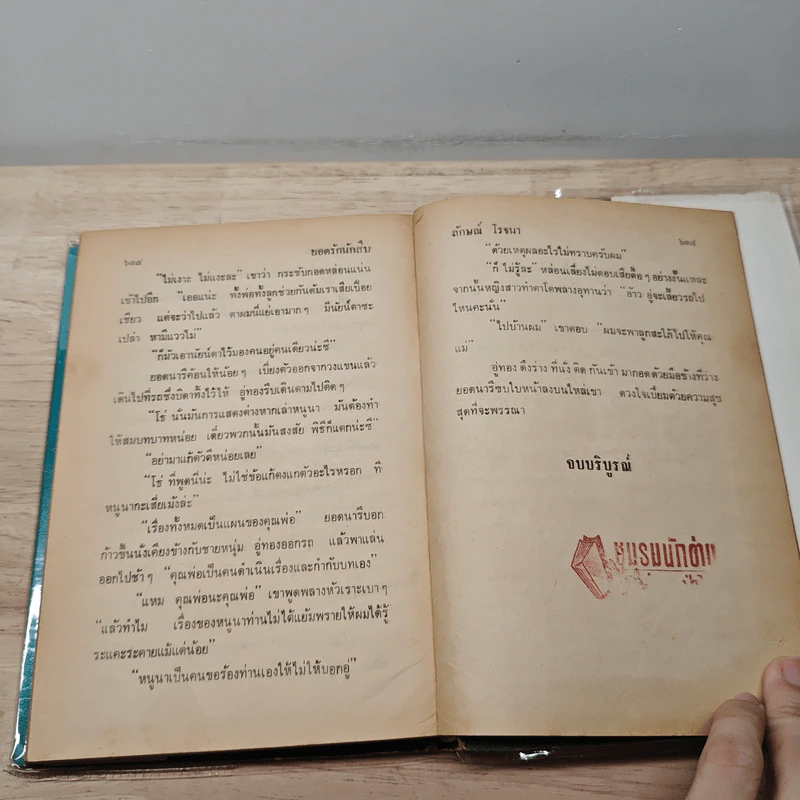 ๖๓๔ ยอดรักนักสืบ
"ไม่เงาะ ไม่แงะละ" เขาว่า กระชับกอดหล่อนแน่น
เข้าไปอีก "เออแน่ะ ทั้งพ่อทั้งลูกช่วยกันต้มเราเสียเปื่อย
เชียว แต่จะว่าไปแล้ว ตาผมนี่แย่เอามากๆ มีนัยน์ตาซะ
เปล่า หามีแววไม่"
"ก็มัวเอานัยน์ตาไว้มองคนอยู่คนเดียวน่ะซี"
ยอดนารีค้อนให้น้อยๆ เบี่ยงตัวออกจากวงแขนแล้ว
เดินไปที่รถซึ่งบิดาทิ้งไว้ให้ อู่ทองรีบเดินตามไปติดๆ
"โธ่ นั่นมันการแสดงต่างหากเล่าหนูนา มันต้องทำ
ให้สมบทบาทหน่อย เดี๋ยวพวกนั้นมันสงสัย พิธีก็แตกน่ะซี"
"อย่ามาแก้ตัวดีหน่อยเลย"
"โธ่ ที่พูดนี่น่ะ ไม่ใช่ข้อแก้ตงแกตัวอะไรหรอก ที่
หนูนากะเสี่ยเม้งล่ะ"
"เรื่องทั้งหมดเป็นแผนของคุณพ่อ" ยอดนารีบอก
ก้าวขึ้นนั่งเคียงข้างกับชายหนุ่ม อู่ทองออกรถ แล้วพาแล่น
ออกไปช้าๆ "คุณพ่อเป็นคนดำเนินเรื่องและกำกับบทเอง"
"แหม คุณพ่อนะคุณพ่อ" เขาพูดพลางหัวเราะเบาๆ
"แล้วทำไม เรื่องของหนูนาท่านไม่ได้แย้มพรายให้ผมได้รู้
ระแคะระคายแม้แต่น้อย"
"หนูนาเป็นคนขอร้องท่านเองให้ไม่ให้บอกอู่"
ลักษณ์ โรจนา ๖๓๕
"ด้วยเหตุผลอะไรไม่ทราบครับผม"
"ก็ ไม่รู้ละ" หล่อนเลี่ยงไม่ตอบเสียดื้อๆ อย่างงั้นแหละ
จากนั้นหญิงสาวทำตาโตพลางอุทานว่า "อ้าว อู่จะเลี้ยวรถไป
ไหนคะนั่น"
"ไปบ้านผม" เขาตอบ "ผมจะพาลูกสะใภ้ไปให้คุณ
แม่"
อู่ทอง ดึงร่าง ที่นั่ง ติด กันเข้า มากอดด้วยมือข้างที่ว่าง
ยอดนารีซบใบหน้าลงบนไหล่เขา ดวงใจเปี่ยมด้วยความสุข
สุดที่จะพรรณา
จบบริบูรณ์
ชมรมนักอ่าน